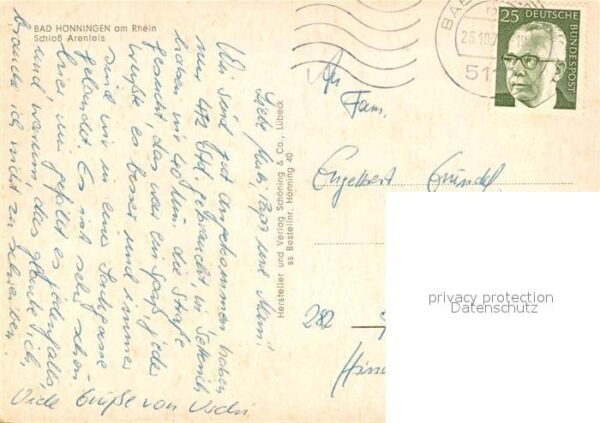 BAD HÖNNINGEN am Rhein
Schloß Arenfels
Liebe Mutti, Papa und Mimi!
Wir sind gut angekommen, haben
nur 4 1/2 Std. gebraucht, in
haben wir 40 Min. die Straße
gesucht, das war ein Spaß, jeder
wußte es besser und immer
sind wir in einer Sackgasse
gelandet. Es ist sehr schön
hier, mir gefällt es jedenfalls
und warum das glaube ich,
brauche ich nicht zu schreiben.
Viele Grüße von
Hersteller und Verlag Schöning & Co., Lübeck
ss Bestellnr. Hönning 40
25
DEUTSCHE
BUNDESPOST
An
Fam.
Engelbert Gründel
282
privacy protection
Datenschutz